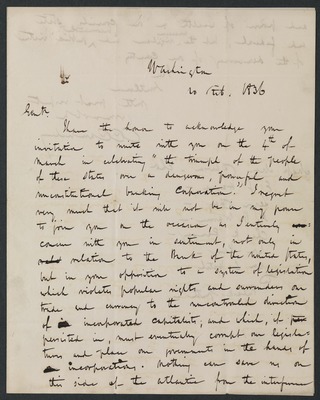 Washington
20 Feb. 1836
Gentn
I have the honor to acknowledge your
invitation to unite with you on the 4th of
March in celebrating "the triumph of the people
of these States over a dangerous, powerful and
unconstitutional banking Corporation." I regret
very much that it will not be in my power
to join you on the occasion, as I entirely
concur with you in sentiment, not only in
relation to the Bank of the United States,
but in your opposition to a system of legislation
which violates popular rights and surrenders our
trade and currency to the uncontrouled direction
of incorporated capitalists, and which, if
persisted in, must eventually corrupt our legisla-
tures and place our government in the hands of
incorporations. Nothing can save us on
this side of the atlantic from the